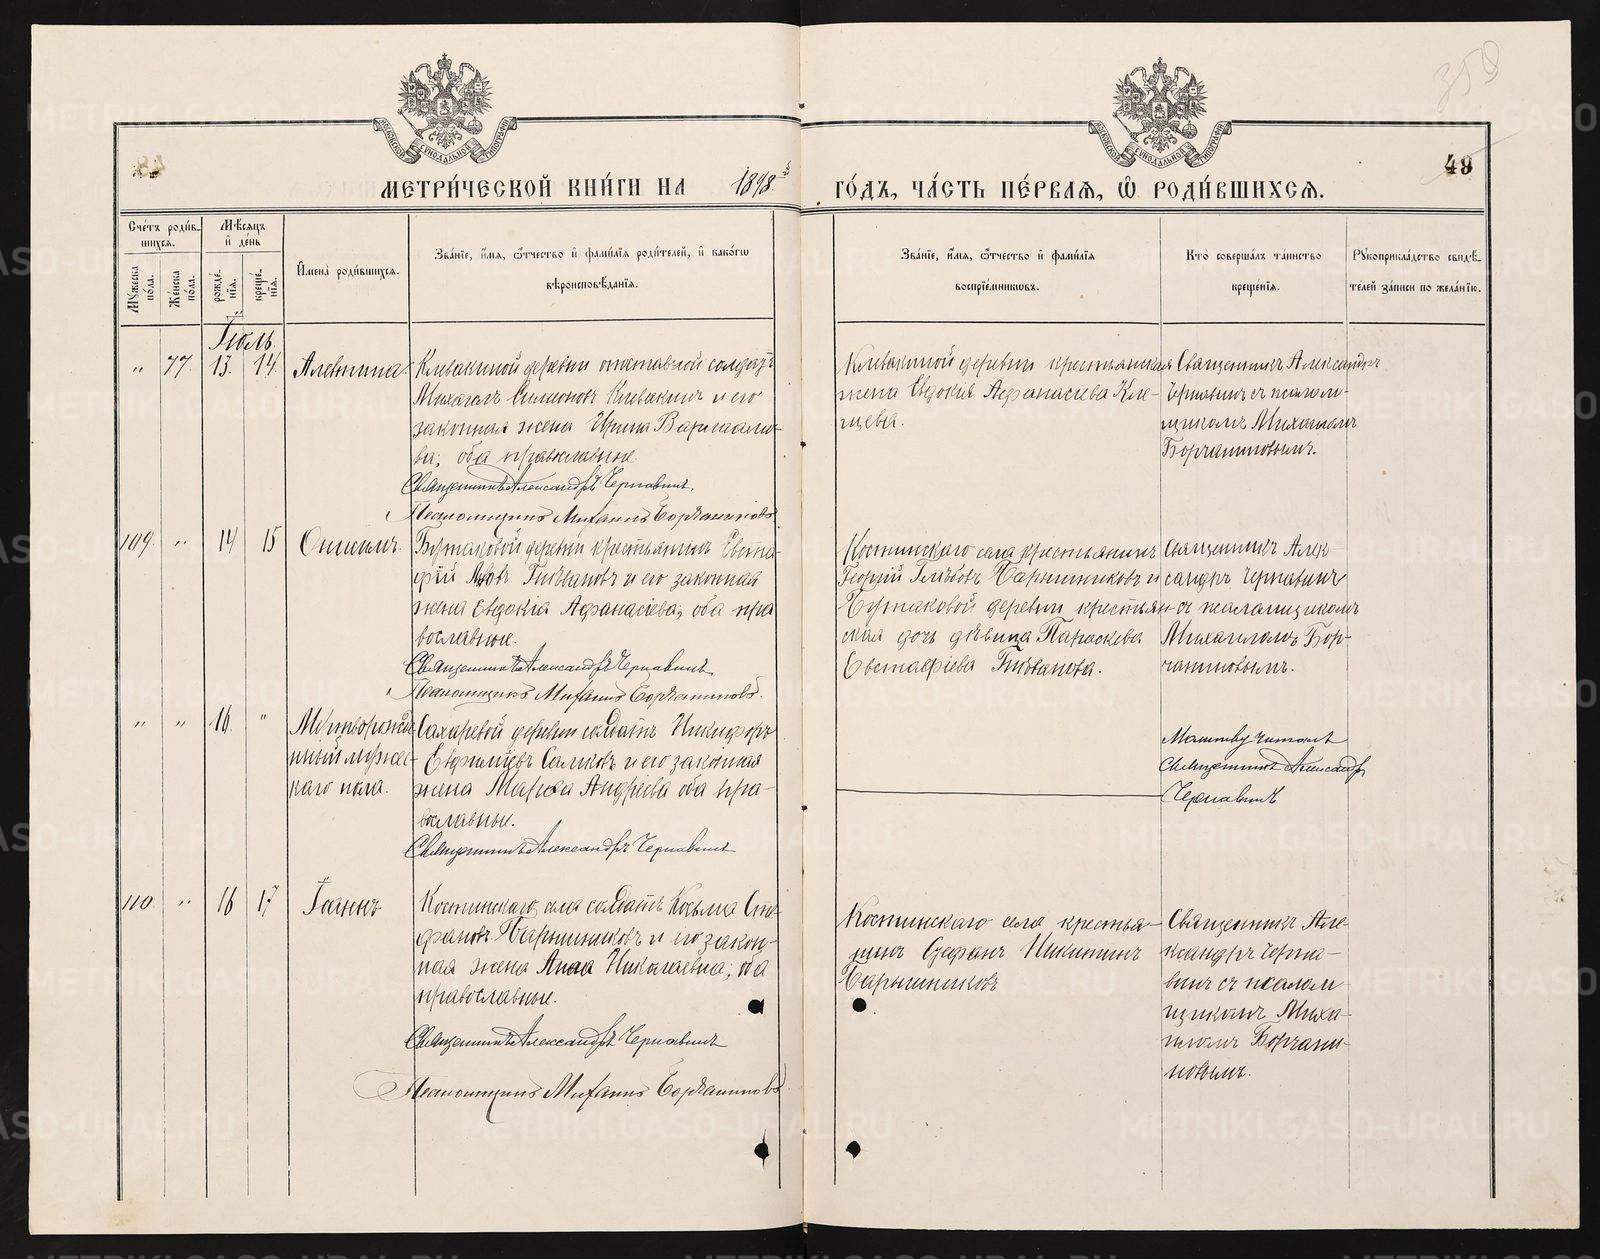 МЕТРИ́ЧЕСКОЙ КНИ́ГИ НА 1898 ГО́ДЪ, ЧА́СТЬ ПЕ́РВАѦ, Ѡ РОДИ́ВШИХСѦ.
49
Сче́тъ роди́в-
шихсѧ.
Мꙋжеска по́ла.
Же́нска по́ла.
Мѣ́сѧцъ
и҆ де́нь
рожде́-
нїѧ.
креще́-
нїѧ.
И҆мена̀ роди́вшихсѧ.
Зва́нїе, и҆́мѧ, ѻ҆́тчество и҆ фами́лїѧ роди́телей, и҆ како́гѡ
вѣроисповѣ́данїѧ.
Зва́нїе, и҆́мѧ, ѻ҆́тчество и҆ фами́лїѧ
воспрїе́мникѡвъ.
Кто̀ соверша́лъ та́инство
креще́нїѧ.
Рꙋкоприкла́дство свидѣ́-
телей за́писи по жела́нїю.
Іюль
" 77. 13. 14. Алевтина
Клевакиной деревни отставной солдатъ
Михаилъ Симеоновъ Клевакинъ и его
законная жена Ирина Варлаамо-
ва; оба православные.
Священникъ Александръ Чернавинъ.
Псаломщикъ Михаилъ Борчаниновъ
Клевакиной деревни крестьянская
жена Евдокія Афанасіева Кле-
щева.
Священникъ Александръ
Чернавинъ съ псалом-
щикомъ Михаиломъ
Борчаниновымъ.
109. " 14 15 Онисимъ.
Бутаковой деревни крестьянинъ Евста-
фій Львовъ Гилевановъ и его законная
жена Евдокія Афанасіева, оба пра
вославные.
Священникъ Александръ Чернавинъ
Псаломщикъ Михаилъ Борчаниновъ.
Костинскаго села крестьянинъ
Георгій Глѣбовъ Барышниковъ и
Бутаковой деревни крестьян-
ская дочь дѣвица Параскева
Евстафіева
Священникъ Алек-
сандръ Чернавинъ
съ псаломщикомъ
Михаиломъ Бор-
чаниновымъ.
" " 16. " Мертворожде
нный мужес-
каго пола.
Сахаревой деревни солдатъ Никифоръ
Евфиміевъ Саликовъ и его законная
жена Марѳа Андреева оба пра-
вославные.
Священникъ Александръ Чернавинъ
Молитву читалъ
Священникъ Александръ
Чернавинъ
110 " 16 17 Іоаннъ
Костинскаго села солдатъ Косьма Сте
фановъ Барышниковъ и его закон-
ная жена Анна Николаевна; оба
православные.
Священникъ Александръ Чернавинъ
Псаломщикъ Михаилъ Борчаниновъ
Костинскаго села крестья-
нинъ Стефанъ Никитинъ
Барышниковъ
Священникъ Але-
ксандръ Черна-
винъ съ псалом
щикомъ Миха-
иломъ Борчани-
новымъ.
METRIKI.GASO-URAL.RU